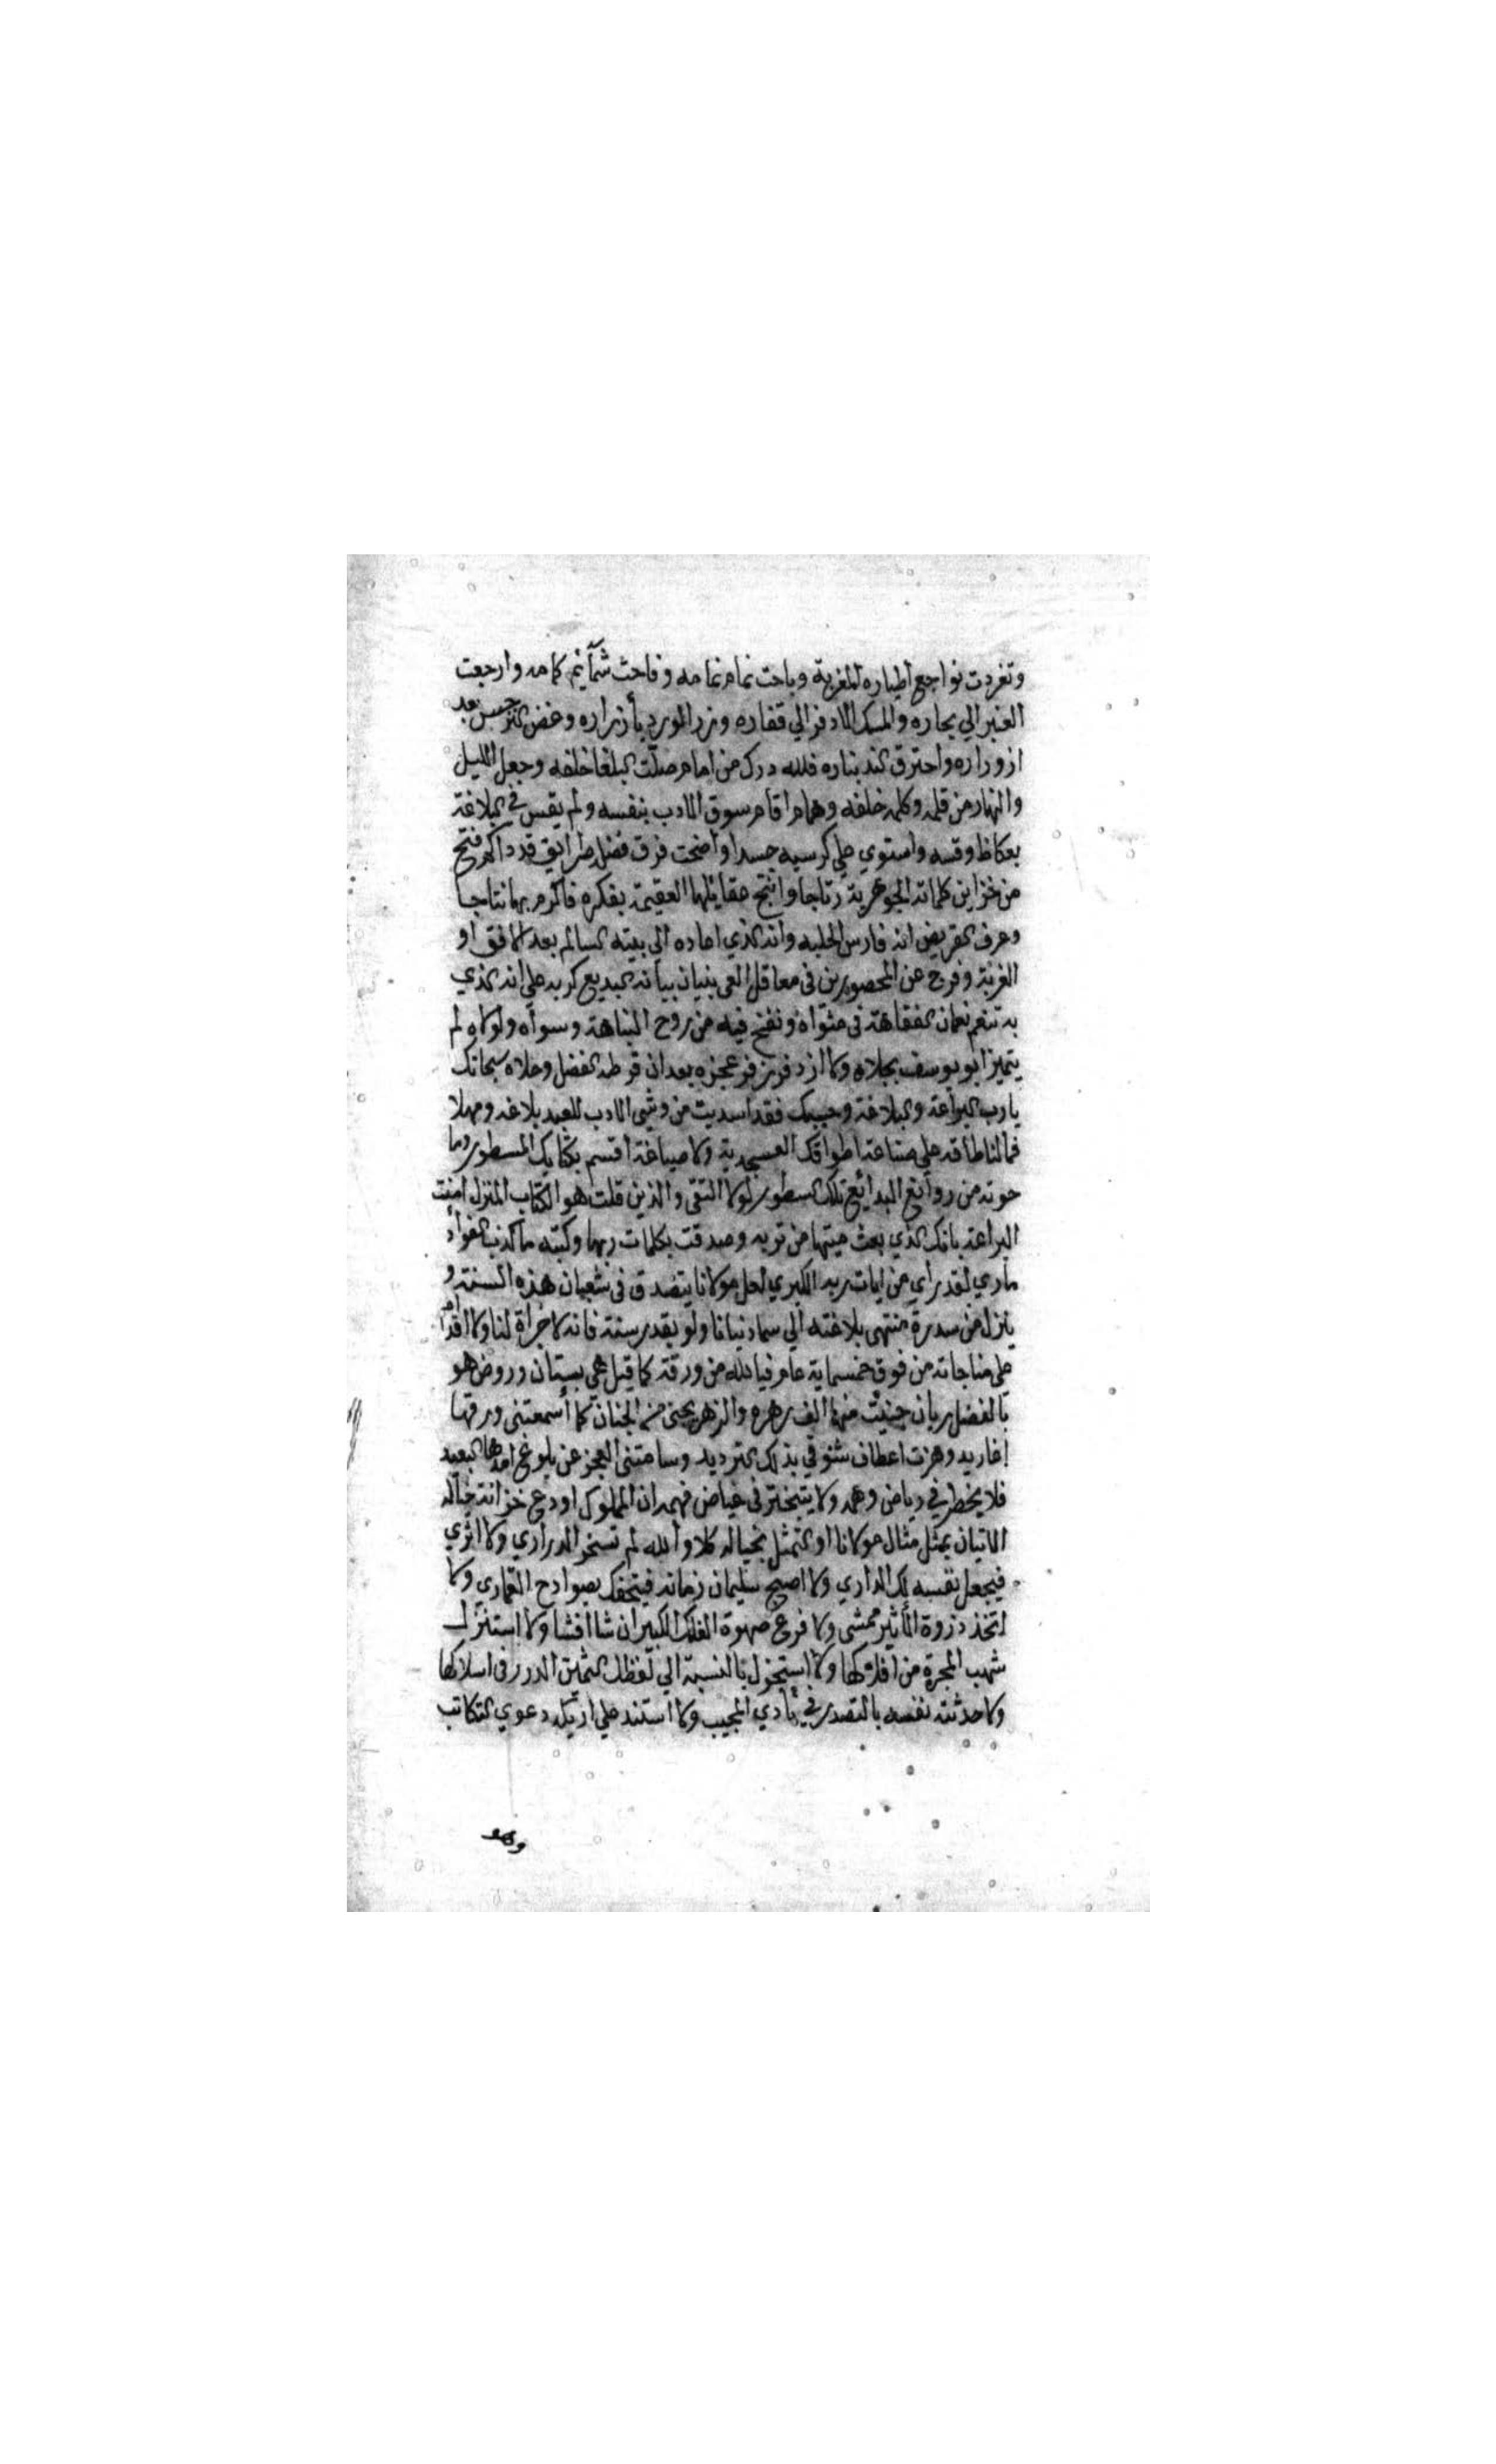 وتغردت نواجع اطياره المغربة وباحت نمام نمامه وفاحت شمآئم كامه وارجعت
العنبر الي بحاره والمسك الادفر الي قفاره وزر المورد بأزراره وغض النرجس بعد
ازوراره واحترق الند بناره فلله درك من امام صلت البلغا خلفه وجعل الليل
والنهار من قلمه وكلمه خلفه وهمام اقام سوق الادب بنفسه ولم يقس في البلاغة
بعكاظ وقسه واستوي علي كرسيه جسدا واضحت فرق فضل طرآيق قددا كم فتح
من خزاين كلماته الجوهرية رتاجا وانتج عقايلها العقيمة بفكره فاكرم بها نتاجا
وعرف القريض انه فارس الحلبه وانه الذي اعاده الي بيته السالم بعد الافق او
الغربة وفرج عن المحصورين في معاقل العي ببنيان بيانه البديع كربه علي انه الذي
به تنعم نعمان الفقاهة في مثواه ونفخ فيه من روح النباهة وسواه ولولاه لم
يتميز ابو يوسف بجلاه ولا ازد فرز فر عجزه بعد ان قرطه الفضل وحلاه سبحانك
يا رب البراعة والبلاغة وحسبك فقد اسديت من وشي الادب للعبد بلاغه ومهلا
فما لنا طاقه علي صناعة اطواقك العسجدية ولا صياغة اقسم بكتابك المسطور وما
حوته من روآئع البدآئع تلك السطور لولا التقي والذين قلت هو الكتاب المنزل امنت
البراعة بانك الذي بعث ميتها من تربه وصدقت بكلمات ربها وكتبه ما كذب الفوآد
ما راي لقد راي من ايات ربه الكبري لعل مولانا يتصدق في شعبان هذه السنة و
ينزل من سدرة منتهي بلاغته الي سما دنيانا ولو بقدر سنة فانه لا جرأة لنا ولا اقدام
علي مناجاته من فوق خمسماية عام فيا لله من ورقة كما قيل هي بستان وروض هو
بالفضل ريان جنيت منها الف زهره والزهر يجني من الجنان كما أسمعتني ورقها
اغاريد وهزت اعطاف شوقي بذلك الترديد وسامتني العجز عن بلوغ امدها البعيد
فلا يخطر في رياض وهمه ولا يتبختر في غياض فهمه ان المملوك اودع خزانة خياله
الاتيان بمثل مثال مولانا او التمثل بخياله كلا والله لم تسخر الدراري ولا اثري
فيجعل نفسه لك الداري ولا اصبح سليمان زمانه فيتحفك بصوادح القماري ولا
اتخذ دزوة الأثير ممشي ولا فرع صهوة الفلك الكبير ان شا افشا ولا استنزل
شهب المجرة من افلاكها ولا استجزل بالنسبة الي لفظك الثمين الدرر في اسلاكها
ولا حدثته نفسه بالتصدر في نادي المجيب ولا استند علي اريكة دعوي التكاتب